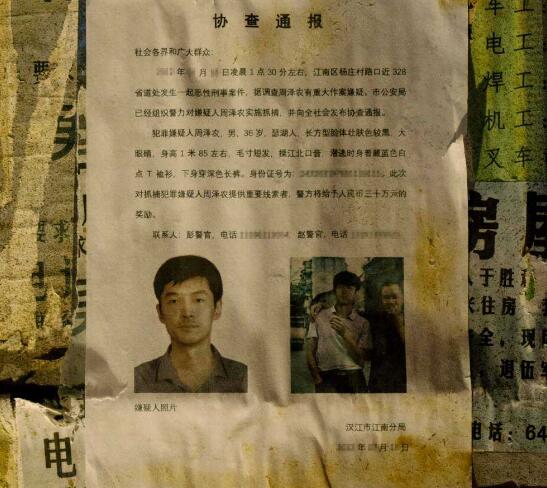 协查通报
社会各界和广大群众:
年 月 日凌晨1点30分左右,江南区杨庄村路口近328
省道处发生一起恶性刑事案件,据调查周泽农有重大作案嫌疑。市公安局
已经组织警力对嫌疑人周泽农实施抓捕,并向全社会发布协查通报。
犯罪嫌疑人周泽农,男,36岁,瑟湖人,长方型脸体壮肤色较黑,大
眼睛,身高1米85左右,毛寸短发,操江北口音,潜逃时身着藏蓝色白
点T袖衫,下身穿深色长裤。身份证号为: 此次
对抓捕犯罪嫌疑人周泽农提供重要线索者,警方将给予人民币三十万元的
奖励。
联系人:彭警官,电话 赵警官,电话
嫌疑人照片
汉江市江南分局
年 月 日
要
求
电
电
车 工
电 工
焊 工
机 工
叉 车
房
人于胜
米住房
全,现
退伍军
电话:64